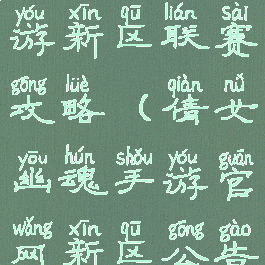 yóu xīn qū lián sài
游新区联赛
gōng lüè qiàn nǚ
攻略（倩女
yōu hún shǒu yóu guān
幽魂手游官
wǎng xīn qū gōng gào
网新区公告